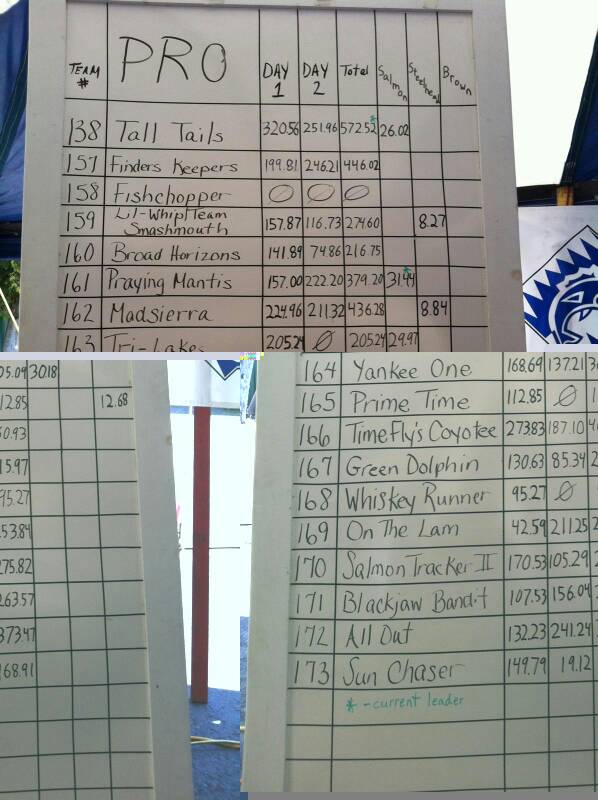 TEAM # PRO DAY 1 DAY 2 Total Salmon Steelhead Brown
138 Tall Tails 320.56 251.96 572.52* 26.02
157 Finders Keepers 199.81 246.21 446.02
158 Fishchopper Ø Ø Ø
159 Lil-Whip/Team Smashmouth 157.87 116.73 274.60 8.27
160 Broad Horizons 141.89 74.86 216.75
161 Praying Mantis 157.00 222.20 379.20 31.44*
162 Madsierra 224.96 211.32 436.28 8.84
163 Tri-Lakes 205.24 Ø 205.24 29.97
05.09 3018
12.85 12.68
60.93
15.97
95.27
53.84
275.82
263.57
373.47
68.91
164 Yankee One 168.69 137.21
165 Prime Time 112.85 Ø
166 TimeFly's Coyotee 273.83 187.10
167 Green Dolphin 130.63 85.34
168 Whiskey Runner 95.27 Ø
169 On The Lam 42.59 211.25
170 Salmon Tracker II 170.53 105.29
171 Blackjaw Bandit 107.53 156.04
172 All Out 132.23 241.24
173 Sun Chaser 149.79 19.12
* - current leader